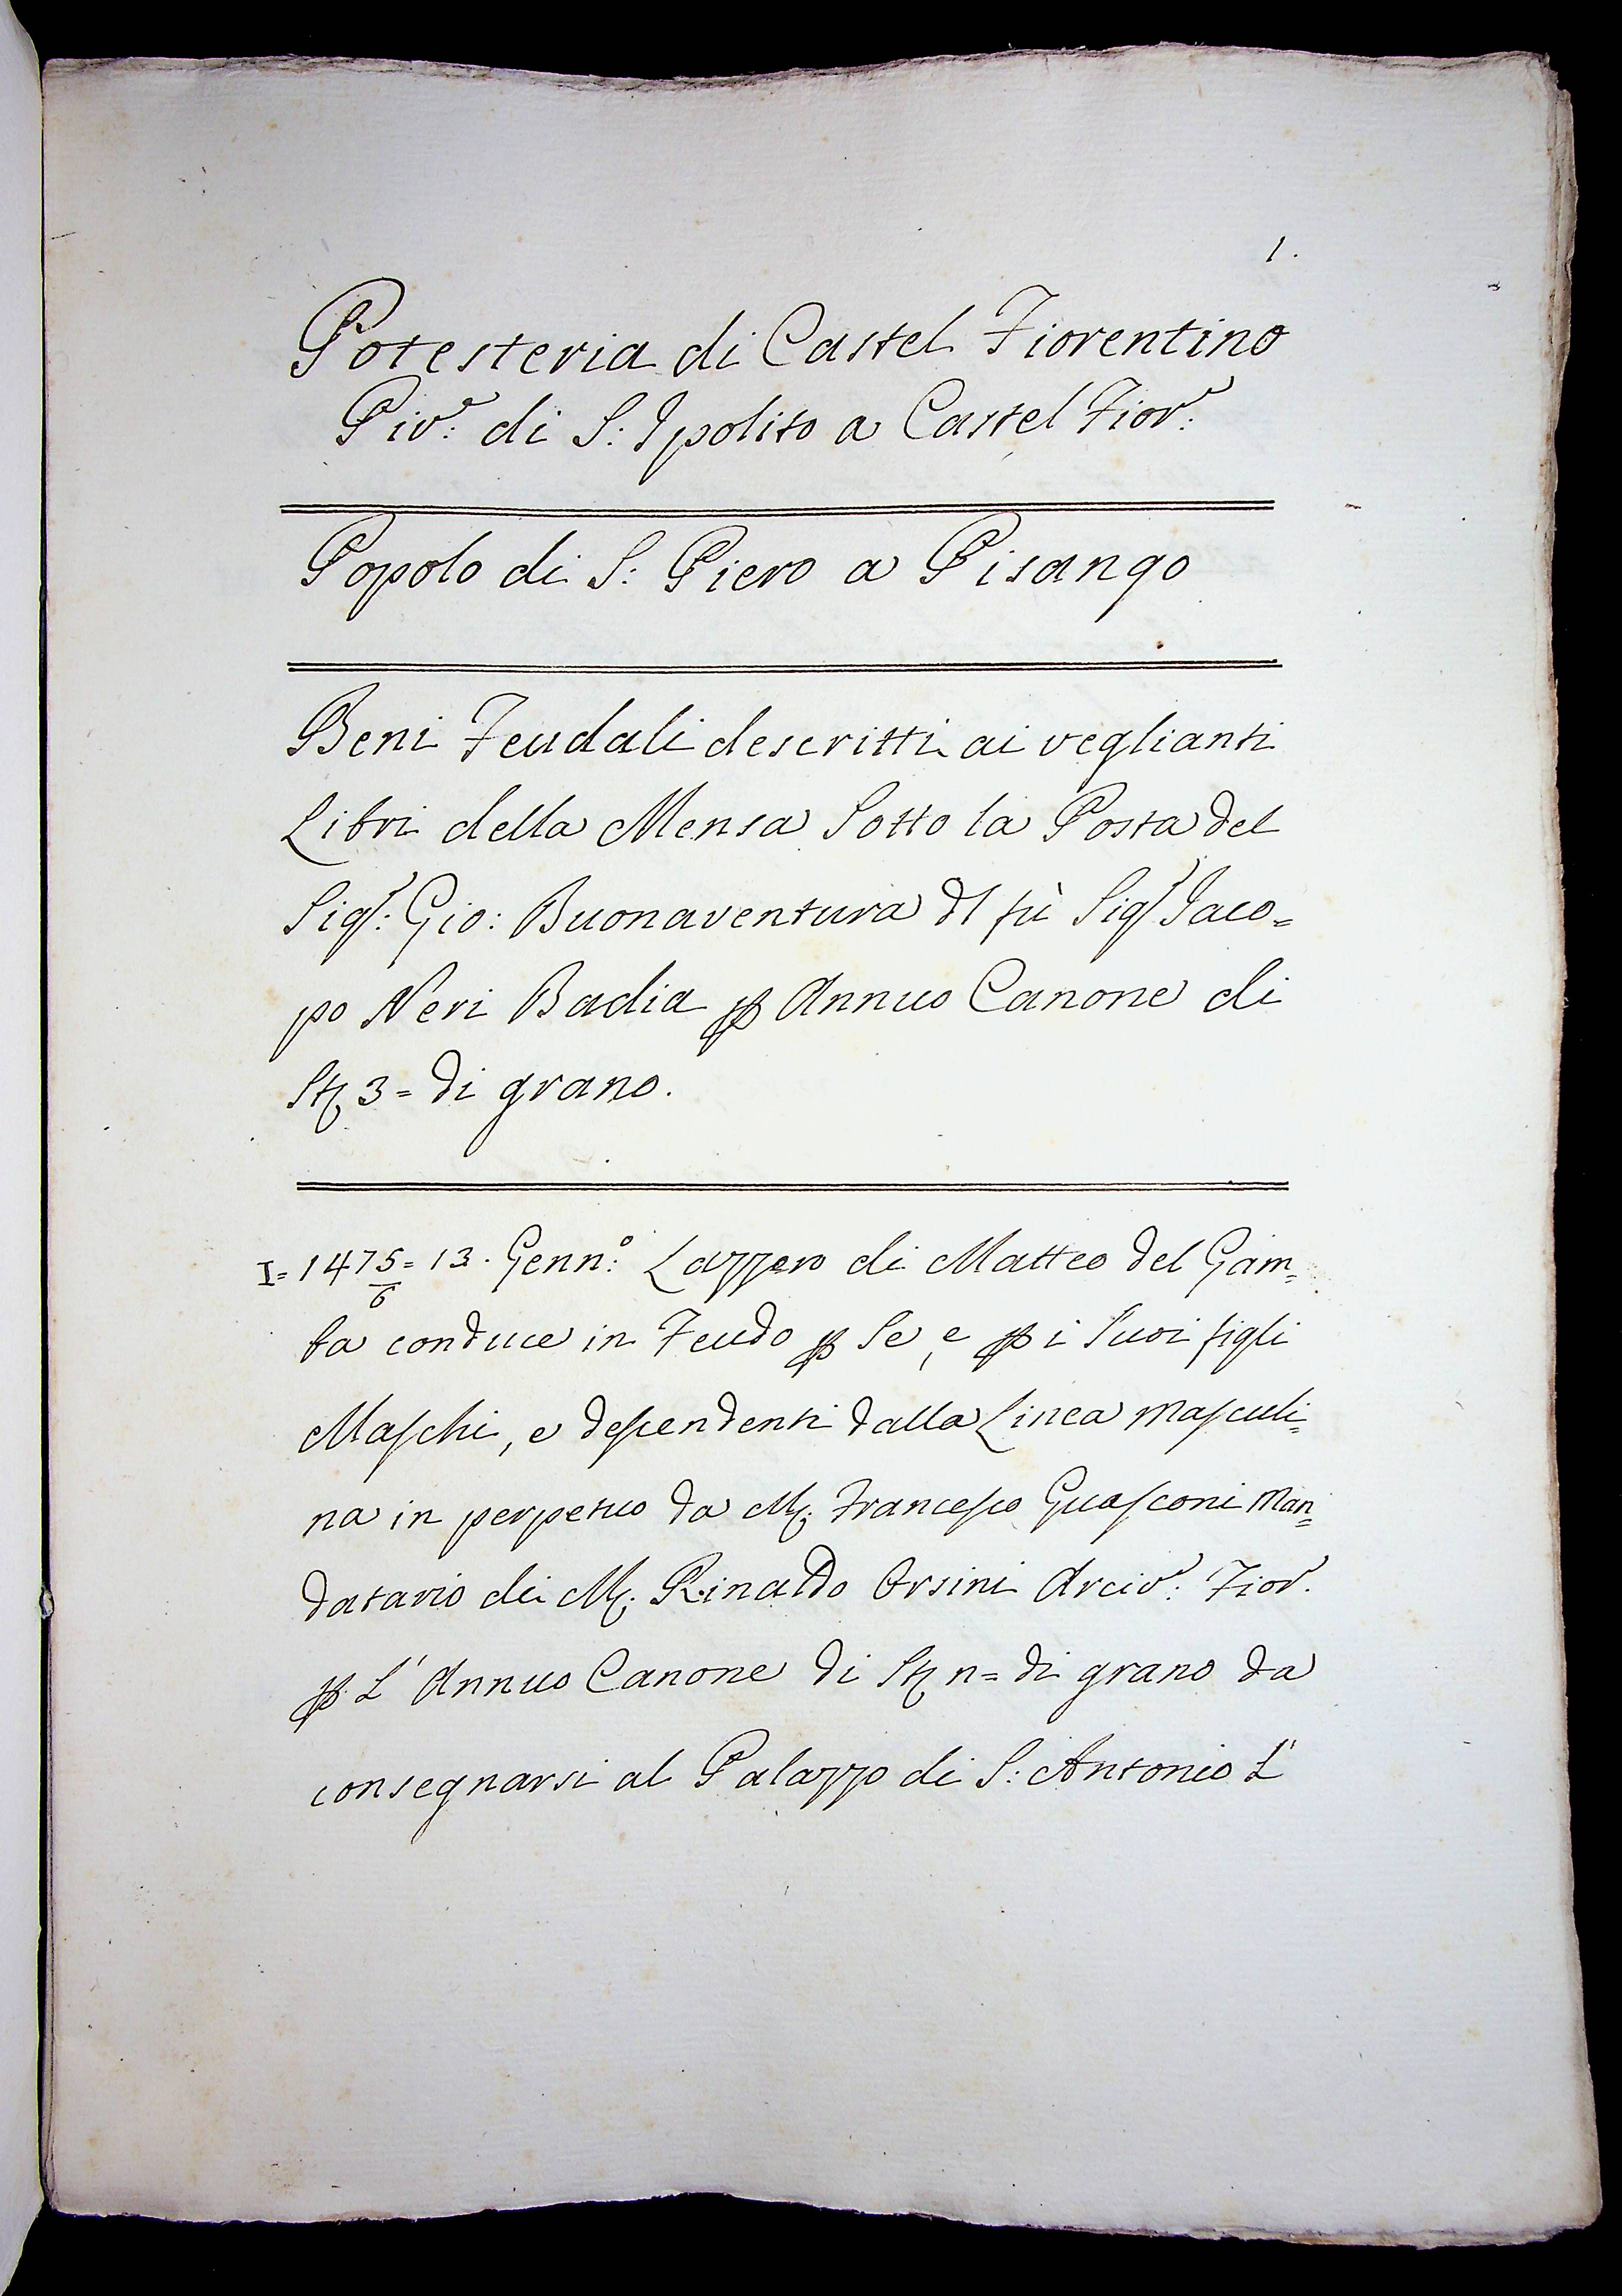 1.
Potesteria di Castel Fiorentino
Piv.e di S: Ipolito a Castel Fior.o
Popolo di S: Piero a Pisango
Beni Feudali descritti ai veglianti
Libri della Mensa Sotto la Posta del
Sigr: Gio: Buonaventura dl fù Sigr Iaco=
po Neri Badia ꝑ Annuo Canone di
Sta 3= di grano.
I= 1475/6= 13. Genn:o Lazzero di Matteo del Gam=
ba conduce in Feudo ꝑ Se, e ꝑ i Suoi figli
Maſchi, e deſcendenti dalla Linea maſculi=
na in perpetuo da M. Franceſco Guaſconi Man=
datario di M. Rinaldo Orsini Arciv: Fior.
ꝑ L' Annuo Canone di Sta n= di grano da
consegnarsi al Palazzo di S: Antonio L'